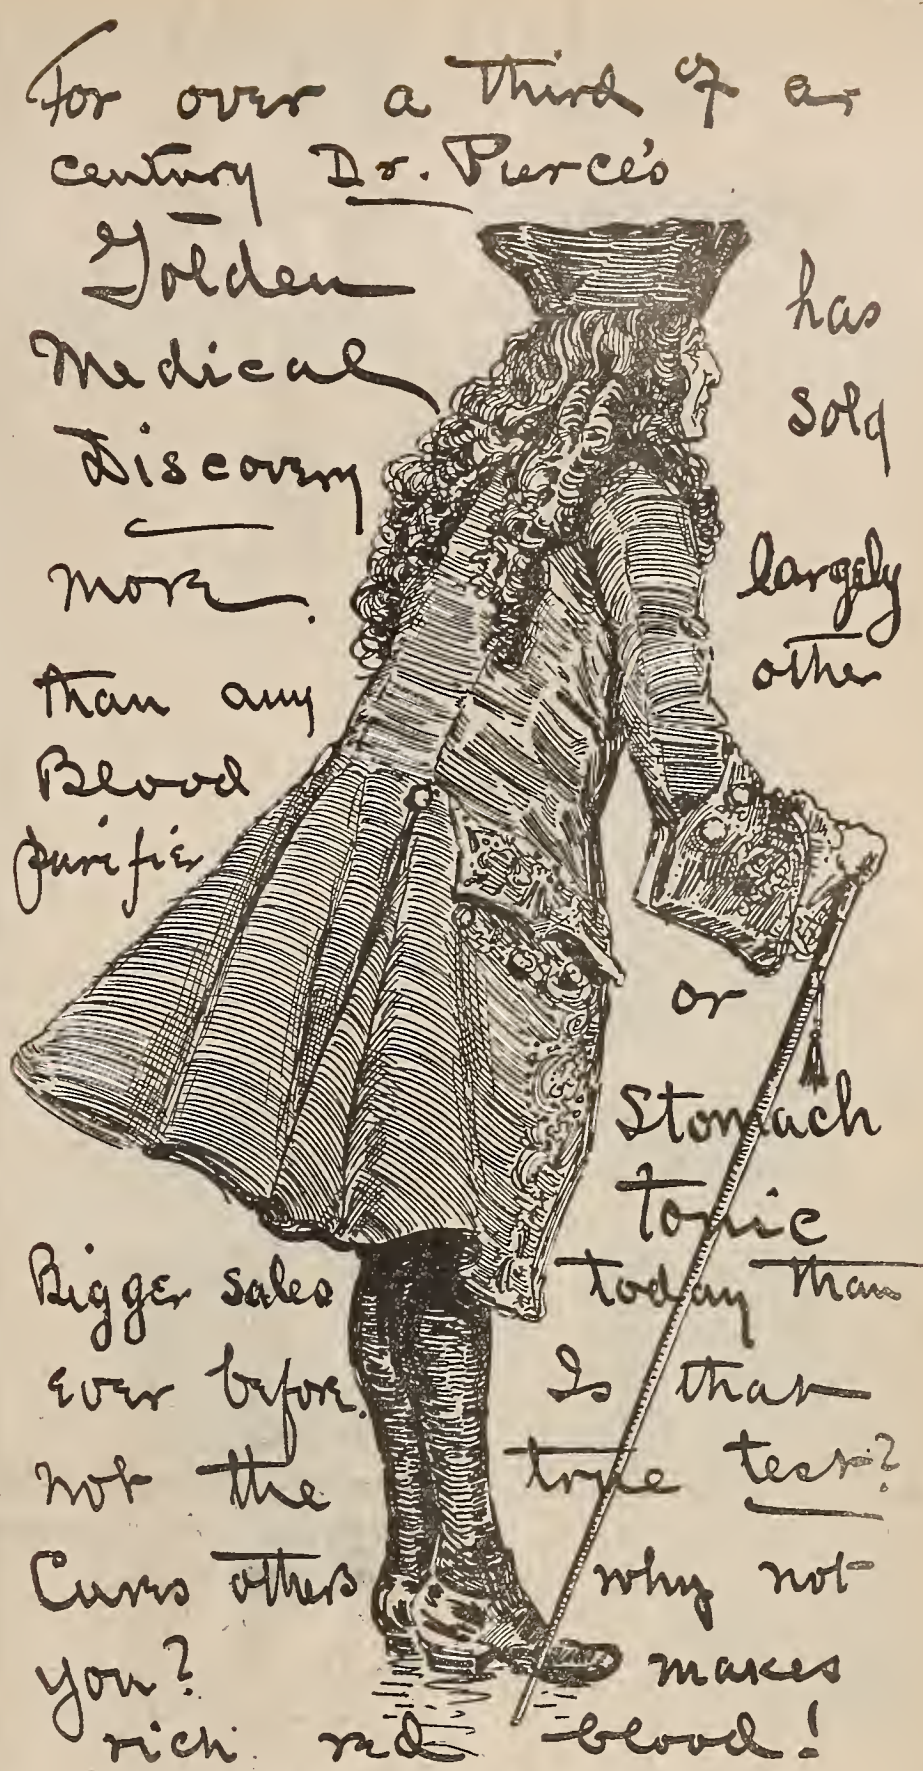 For over a third of a
century Dr. Pierce's
Golden
Medical
Discovery
has
sold
more largely
than any other
Blood
purifier
or
Stomach
tonic
Bigger sales today than
ever before. Is that
not the true test?
Cures others why not
you? makes
rich red blood!